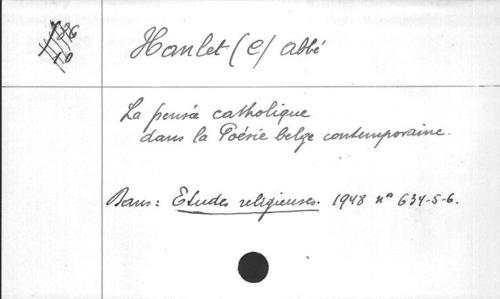 Hanlet (C) abbé
La pensée catholique
dans la Poésie belge contemporaine.
Dans: Etudes religieuses. 1948 n° 634-5-6.